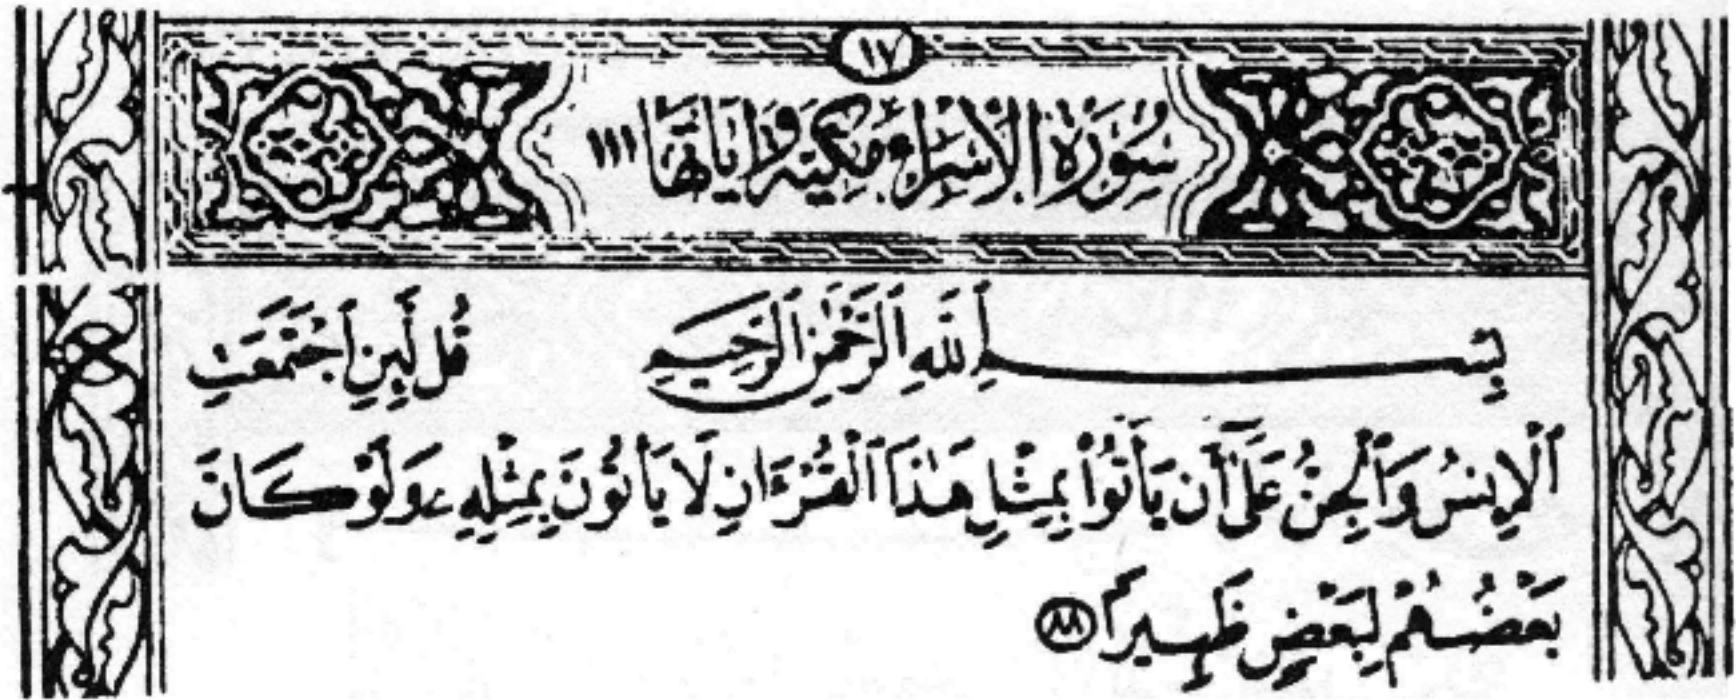 ١٧
سُورَةُ الْإِسْرَاءِ مَكِّيَّة وَآيَاتُهَا ١١١
بِسْـــــــمِ ٱللَّهِ ٱلرَّحْمَٰنِ ٱلرَّحِيمِ قُل لَّئِنِ ٱجْتَمَعَتِ
ٱلْإِنسُ وَٱلْجِنُّ عَلَىٰٓ أَن يَأْتُوا۟ بِمِثْلِ هَٰذَا ٱلْقُرْءَانِ لَا يَأْتُونَ بِمِثْلِهِۦ وَلَوْ كَانَ
بَعْضُهُمْ لِبَعْضٍ ظَهِيرًا ٨٨